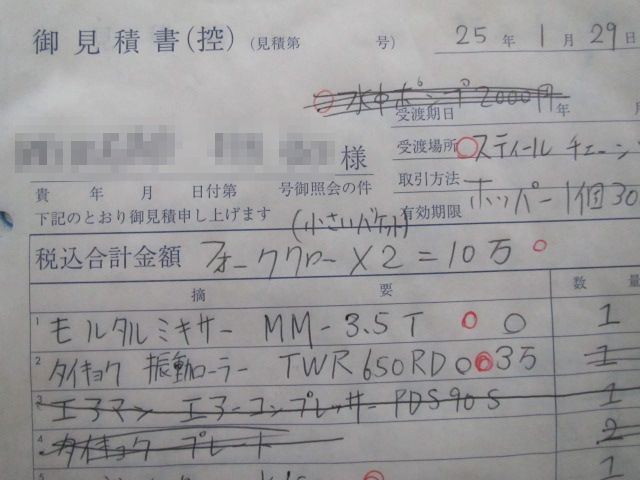 御見積書(控) (見積第 号) 25年1月29日
水中ポンプ 2000円
受渡期日 年 月
様 受渡場所 スティールチェーン
貴 年 月 日付第 号御照会の件 取引方法 ホッパー1個30
下記のとおり御見積申し上げます 有効期限
(小さいバケット)
税込合計金額 フォーククロー×2=10万
摘 要 数 量
1 モルタルミキサー MM-3.5T 1
2 タイキョク 振動ローラー TWR650RD 3万 1
3 エアマン エアーコンプレッサー PDS90S 1
4 タイキョク プレート 2
5 1